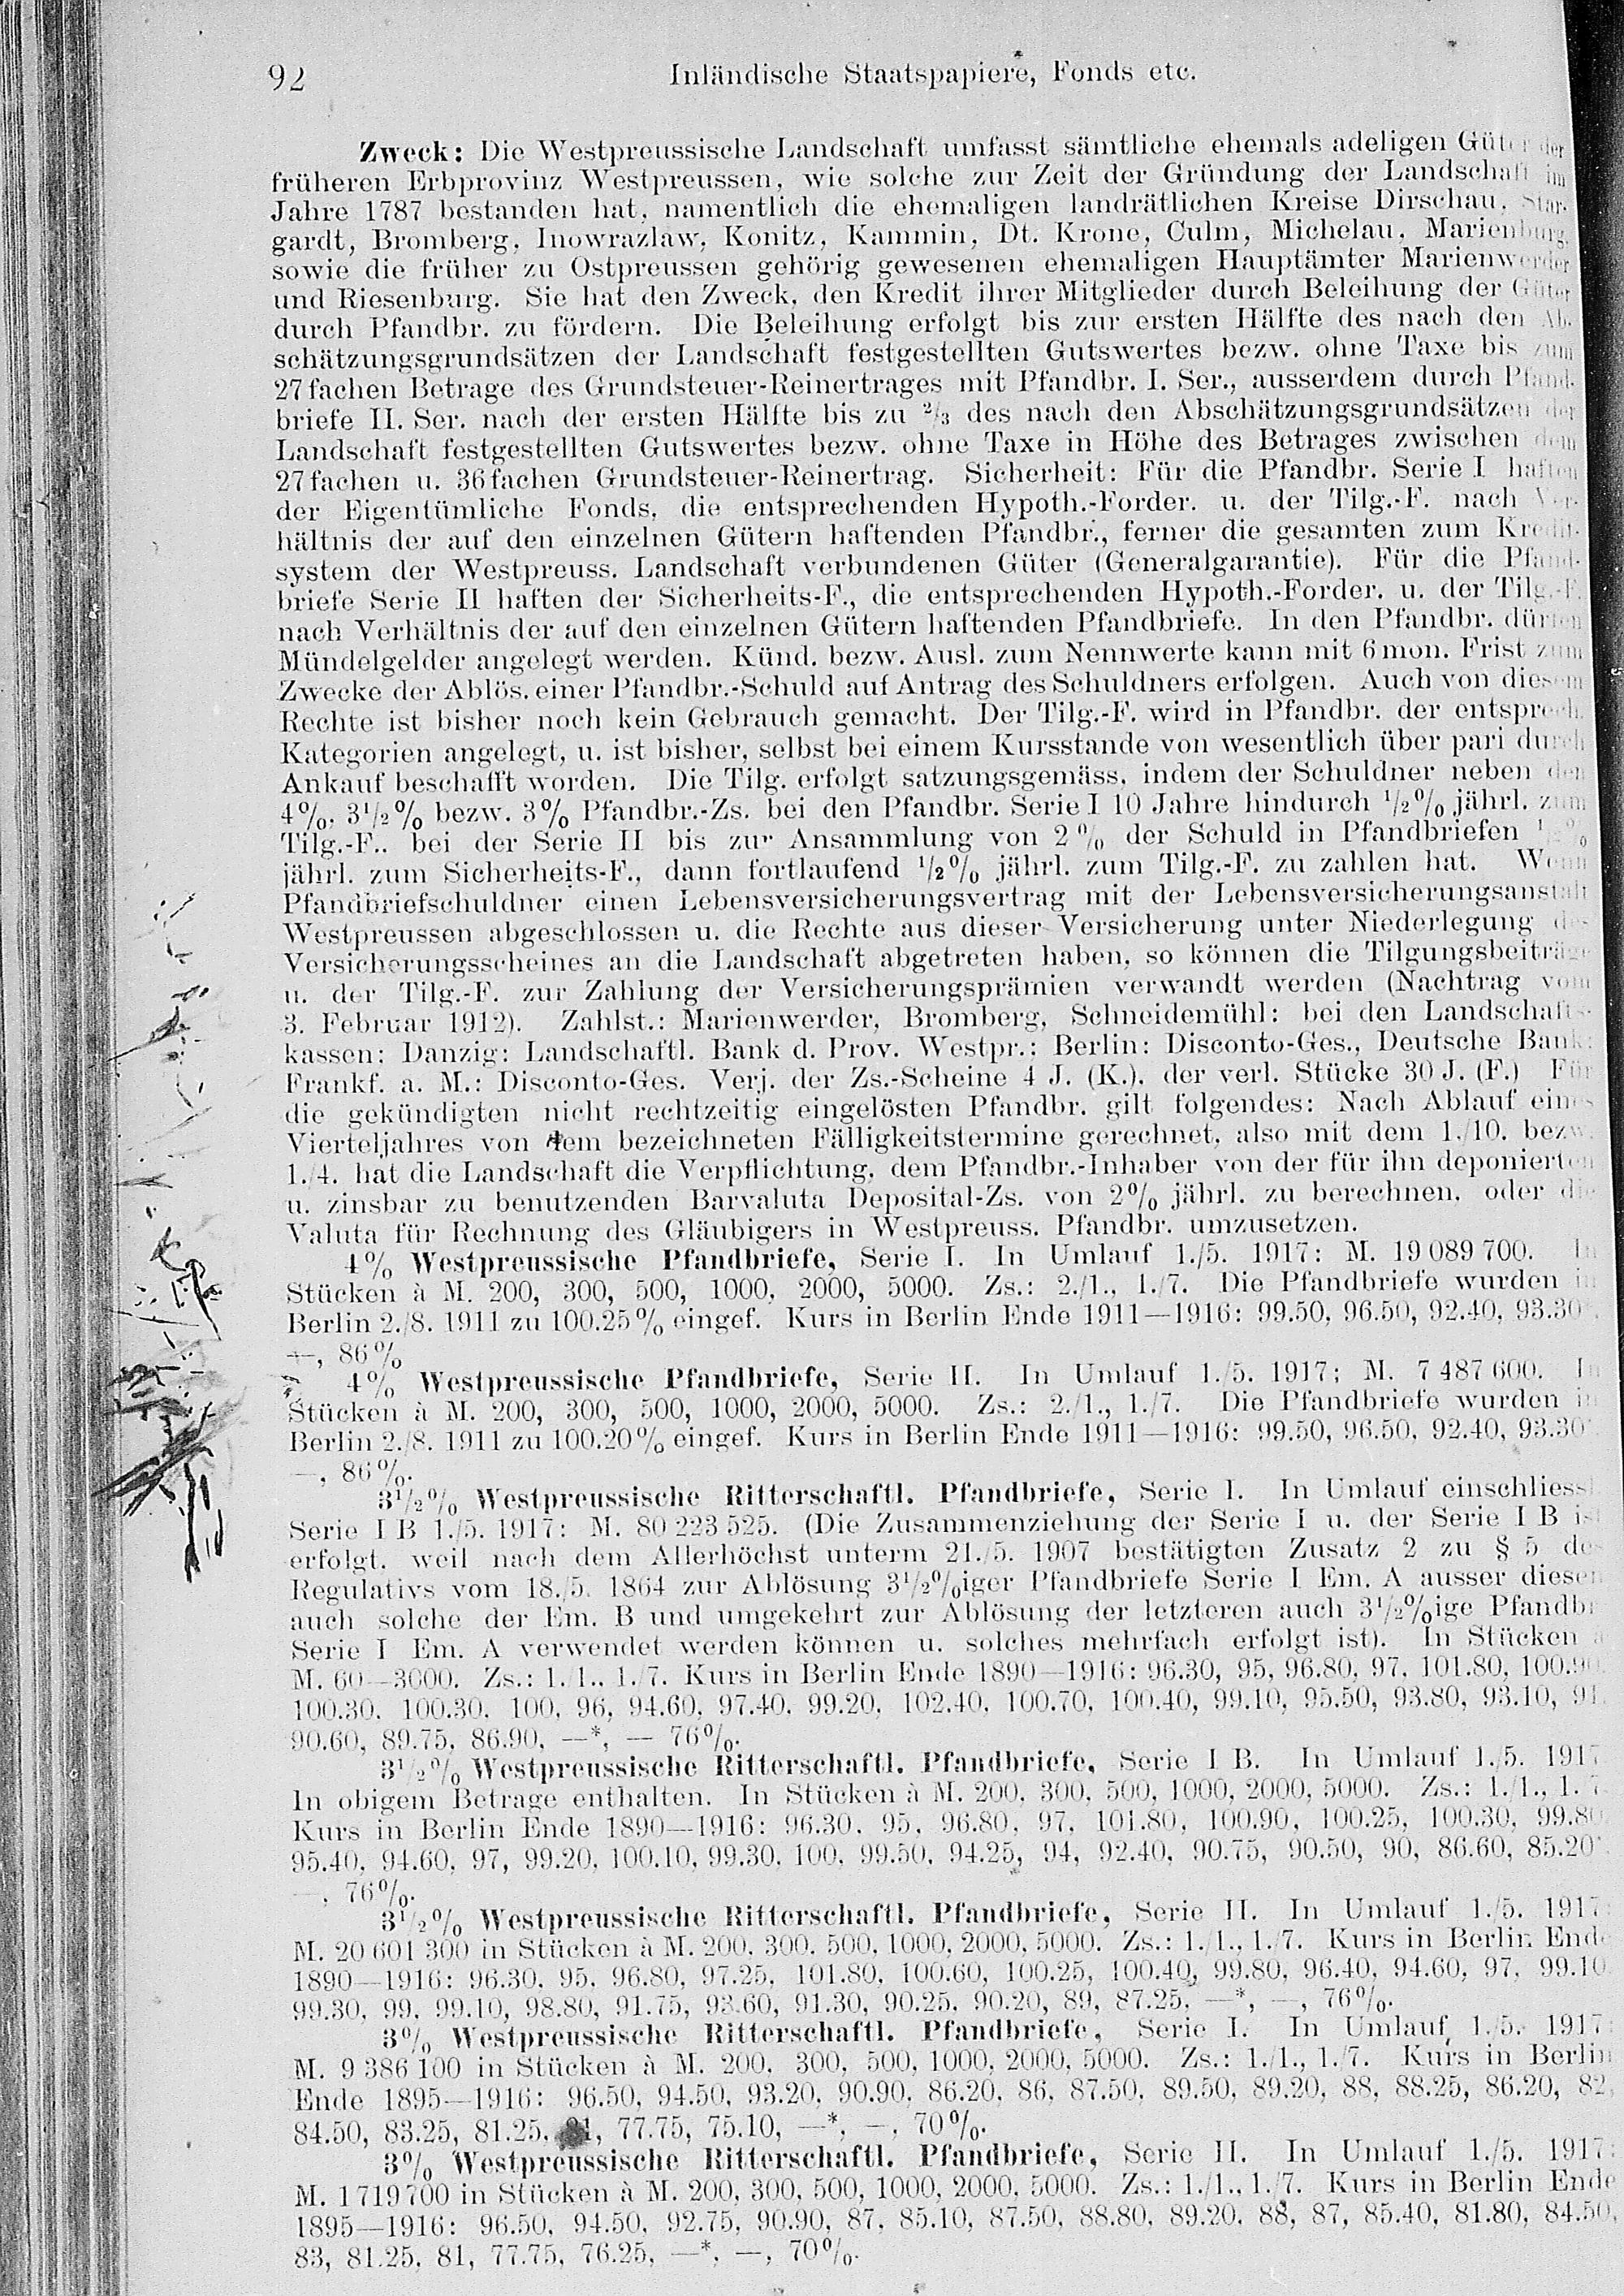 92 Inländische Staatspapiere, Fonds etc.
Zweck: Die Westpreussische Landschaft umfasst sämtliche ehemals adeligen Güter der
früheren Erbprovinz Westpreussen, wie solche zur Zeit der Gründung der Landschaft im
Jahre 1787 bestanden hat, namentlich die ehemaligen landrätlichen Kreise Dirschau, Star-
gardt, Bromberg, Inowrazlaw, Konitz, Kammin, Dt. Krone, Culm, Michelau, Marienburg,
sowie die früher zu Ostpreussen gehörig gewesenen ehemaligen Hauptämter Marienwerder
und Riesenburg. Sie hat den Zweck, den Kredit ihrer Mitglieder durch Beleihung der Güter
durch Pfandbr. zu fördern. Die Beleihung erfolgt bis zur ersten Hälfte des nach den Ab-
schätzungsgrundsätzen der Landschaft festgestellten Gutswertes bezw. ohne Taxe bis zum
27fachen Betrage des Grundsteuer-Reinertrages mit Pfandbr. I. Ser., ausserdem durch Pfand-
briefe II. Ser. nach der ersten Hälfte bis zu 2/3 des nach den Abschätzungsgrundsätzen der
Landschaft festgestellten Gutswertes bezw. ohne Taxe in Höhe des Betrages zwischen dem
27fachen u. 36fachen Grundsteuer-Reinertrag. Sicherheit: Für die Pfandbr. Serie I haften
der Eigentümliche Fonds, die entsprechenden Hypoth.-Forder. u. der Tilg.-F. nach Ver-
hältnis der auf den einzelnen Gütern haftenden Pfandbr., ferner die gesamten zum Kredit-
system der Westpreuss. Landschaft verbundenen Güter (Generalgarantie). Für die Pfand-
briefe Serie II haften der Sicherheits-F., die entsprechenden Hypoth.-Forder. u. der Tilg.-F.
nach Verhältnis der auf den einzelnen Gütern haftenden Pfandbriefe. In den Pfandbr. dürfen
Mündelgelder angelegt werden. Künd. bezw. Ausl. zum Nennwerte kann mit 6 mon. Frist zum
Zwecke der Ablös. einer Pfandbr.-Schuld auf Antrag des Schuldners erfolgen. Auch von diesem
Rechte ist bisher noch kein Gebrauch gemacht. Der Tilg.-F. wird in Pfandbr. der entsprech.
Kategorien angelegt, u. ist bisher, selbst bei einem Kursstande von wesentlich über pari durch
Ankauf beschafft worden. Die Tilg. erfolgt satzungsgemäss, indem der Schuldner neben den
4%, 3 1/2% bezw. 3% Pfandbr.-Zs. bei den Pfandbr. Serie I 10 Jahre hindurch 1/2% jährl. zum
Tilg.-F., bei der Serie II bis zur Ansammlung von 2% der Schuld in Pfandbriefen 1/2%
jährl. zum Sicherheits-F., dann fortlaufend 1/2% jährl. zum Tilg.-F. zu zahlen hat. Wenn
Pfandbriefschuldner einen Lebensversicherungsvertrag mit der Lebensversicherungsanstalt
Westpreussen abgeschlossen u. die Rechte aus dieser Versicherung unter Niederlegung des
Versicherungsscheines an die Landschaft abgetreten haben, so können die Tilgungsbeiträge
u. der Tilg.-F. zur Zahlung der Versicherungsprämien verwandt werden (Nachtrag vom
3. Februar 1912). Zahlst.: Marienwerder, Bromberg, Schneidemühl: bei den Landschafts-
kassen; Danzig: Landschaftl. Bank d. Prov. Westpr.; Berlin: Disconto-Ges., Deutsche Bank;
Frankf. a. M.: Disconto-Ges. Verj. der Zs.-Scheine 4 J. (K.), der verl. Stücke 30 J. (F.) Für
die gekündigten nicht rechtzeitig eingelösten Pfandbr. gilt folgendes: Nach Ablauf eines
Vierteljahres von dem bezeichneten Fälligkeitstermine gerechnet, also mit dem 1./10. bezw.
1./4. hat die Landschaft die Verpflichtung, dem Pfandbr.-Inhaber von der für ihn deponierten
u. zinsbar zu benutzenden Barvaluta Deposital-Zs. von 2% jährl. zu berechnen, oder die
Valuta für Rechnung des Gläubigers in Westpreuss. Pfandbr. umzusetzen.
4% Westpreussische Pfandbriefe, Serie I. In Umlauf 1./5. 1917: M. 19 089 700. In
Stücken à M. 200, 300, 500, 1000, 2000, 5000. Zs.: 2./1., 1./7. Die Pfandbriefe wurden in
Berlin 2./8. 1911 zu 100.25% eingef. Kurs in Berlin Ende 1911—1916: 99.50, 96.50, 92.40, 93.30*,
—, 86%
4% Westpreussische Pfandbriefe, Serie II. In Umlauf 1./5. 1917; M. 7 487 600. In
Stücken à M. 200, 300, 500, 1000, 2000, 5000. Zs.: 2./1., 1./7. Die Pfandbriefe wurden in
Berlin 2./8. 1911 zu 100.20% eingef. Kurs in Berlin Ende 1911—1916: 99.50, 96.50, 92.40, 93.30*,
—, 86%.
3 1/2% Westpreussische Ritterschaftl. Pfandbriefe, Serie I. In Umlauf einschliessl.
Serie I B 1./5. 1917: M. 80 223 525. (Die Zusammenziehung der Serie I u. der Serie I B ist
erfolgt, weil nach dem Allerhöchst unterm 21./5. 1907 bestätigten Zusatz 2 zu § 5 des
Regulativs vom 18./5. 1864 zur Ablösung 3 1/2%iger Pfandbriefe Serie I Em. A ausser diesen
auch solche der Em. B und umgekehrt zur Ablösung der letzteren auch 3 1/2%ige Pfandbr.
Serie I Em. A verwendet werden können u. solches mehrfach erfolgt ist). In Stücken à
M. 60—3000. Zs.: 1./1., 1./7. Kurs in Berlin Ende 1890—1916: 96.30, 95, 96.80, 97, 101.80, 100.90,
100.30, 100.30, 100, 96, 94.60, 97.40, 99.20, 102.40, 100.70, 100.40, 99.10, 95.50, 93.80, 93.10, 91,
90.60, 89.75, 86.90, —*, — 76%.
3 1/2% Westpreussische Ritterschaftl. Pfandbriefe, Serie I B. In Umlauf 1./5. 1917
In obigem Betrage enthalten. In Stücken à M. 200, 300, 500, 1000, 2000, 5000. Zs.: 1./1., 1./7.
Kurs in Berlin Ende 1890—1916: 96.30, 95, 96.80, 97, 101.80, 100.90, 100.25, 100.30, 99.80,
95.40, 94.60, 97, 99.20, 100.10, 99.30, 100, 99.50, 94.25, 94, 92.40, 90.75, 90.50, 90, 86.60, 85.20*,
—, 76%.
3 1/2% Westpreussische Ritterschaftl. Pfandbriefe, Serie II. In Umlauf 1./5. 1917:
M. 20 601 300 in Stücken à M. 200, 300, 500, 1000, 2000, 5000. Zs.: 1./1., 1./7. Kurs in Berlin Ende
1890—1916: 96.30, 95, 96.80, 97.25, 101.80, 100.60, 100.25, 100.40, 99.80, 96.40, 94.60, 97, 99.10,
99.30, 99, 99.10, 98.80, 91.75, 93.60, 91.30, 90.25, 90.20, 89, 87.25, —*, —, 76%.
3% Westpreussische Ritterschaftl. Pfandbriefe, Serie I. In Umlauf 1./5. 1917:
M. 9 386 100 in Stücken à M. 200, 300, 500, 1000, 2000, 5000. Zs.: 1./1., 1./7. Kurs in Berlin
Ende 1895—1916: 96.50, 94.50, 93.20, 90.90, 86.20, 86, 87.50, 89.50, 89.20, 88, 88.25, 86.20, 82,
84.50, 83.25, 81.25, 81, 77.75, 75.10, —*, —, 70%.
3% Westpreussische Ritterschaftl. Pfandbriefe, Serie II. In Umlauf 1./5. 1917:
M. 1 719 700 in Stücken à M. 200, 300, 500, 1000, 2000, 5000. Zs.: 1./1., 1./7. Kurs in Berlin Ende
1895—1916: 96.50, 94.50, 92.75, 90.90, 87, 85.10, 87.50, 88.80, 89.20, 88, 87, 85.40, 81.80, 84.50,
83, 81.25, 81, 77.75, 76.25, —*, —, 70%.